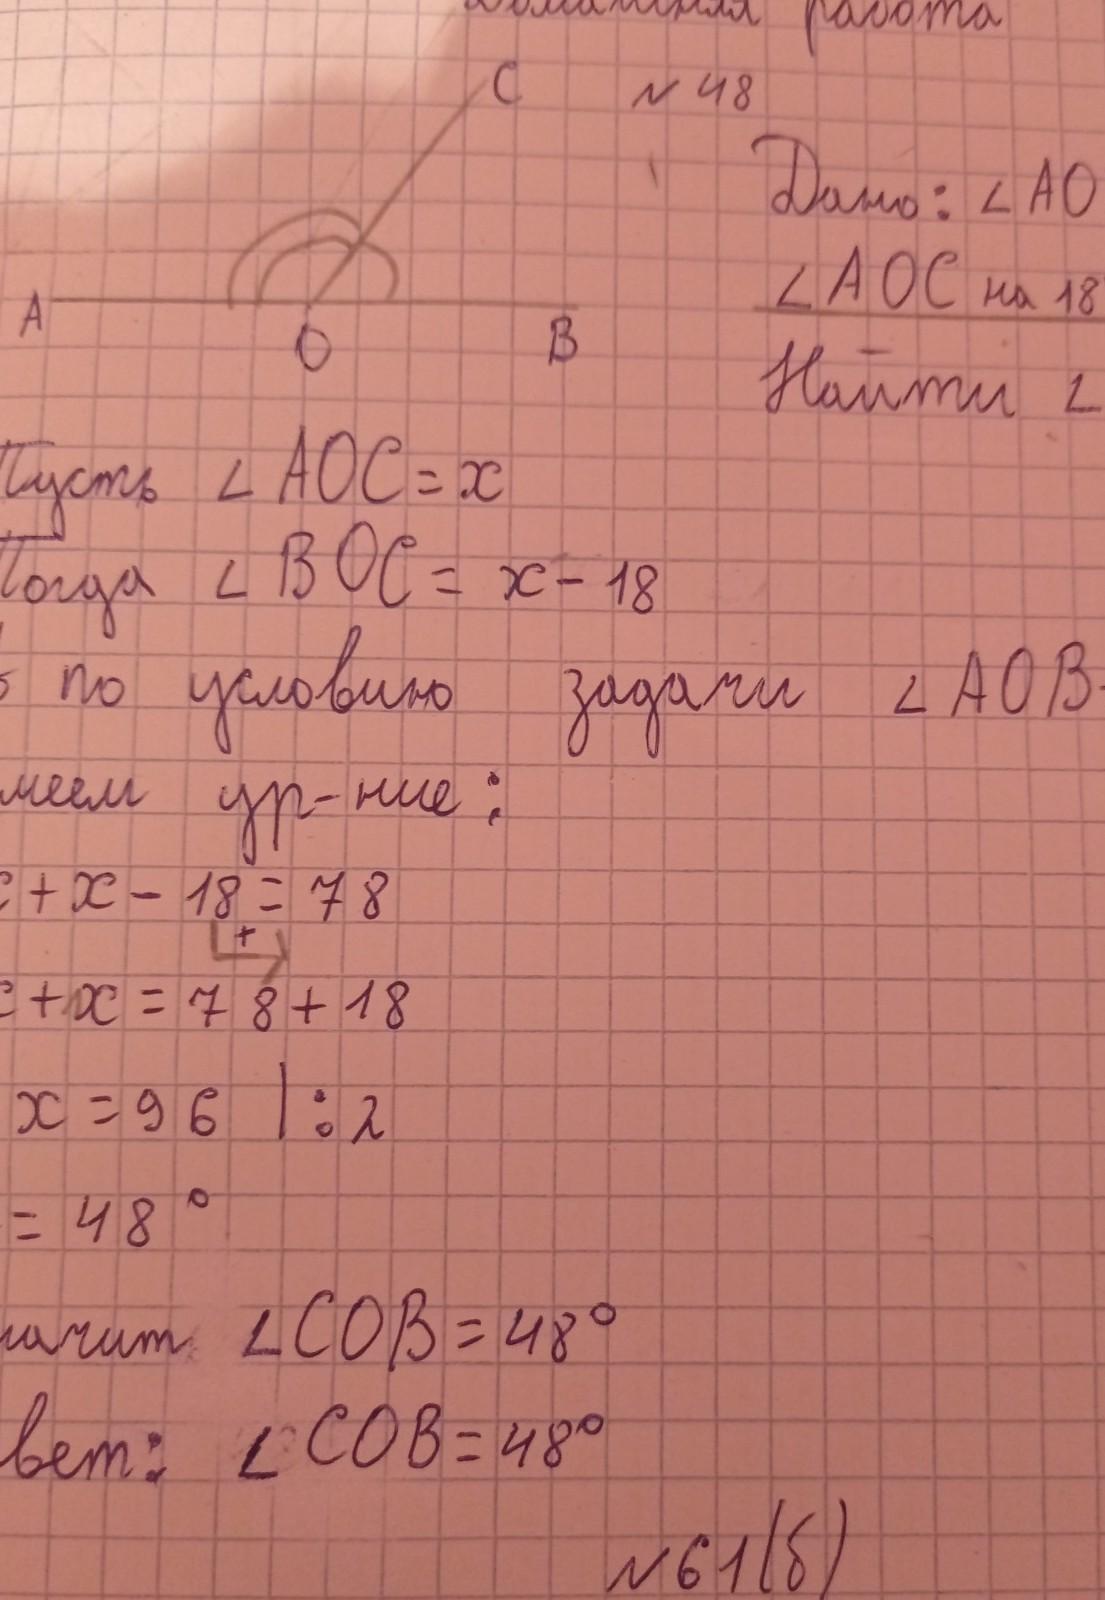 Домашняя работа
C
№ 48
Дано: ∠AO
∠AOC на 18
A
O
B
Найти ∠
Пусть ∠AOC = x
Тогда ∠BOC = x - 18
по условию задачи ∠AOB
меем ур-ние:
+ x - 18 = 78
+
+ x = 78 + 18
x = 96 | : 2
= 48°
начит ∠COB = 48°
вет: ∠COB = 48°
№ 61(б)